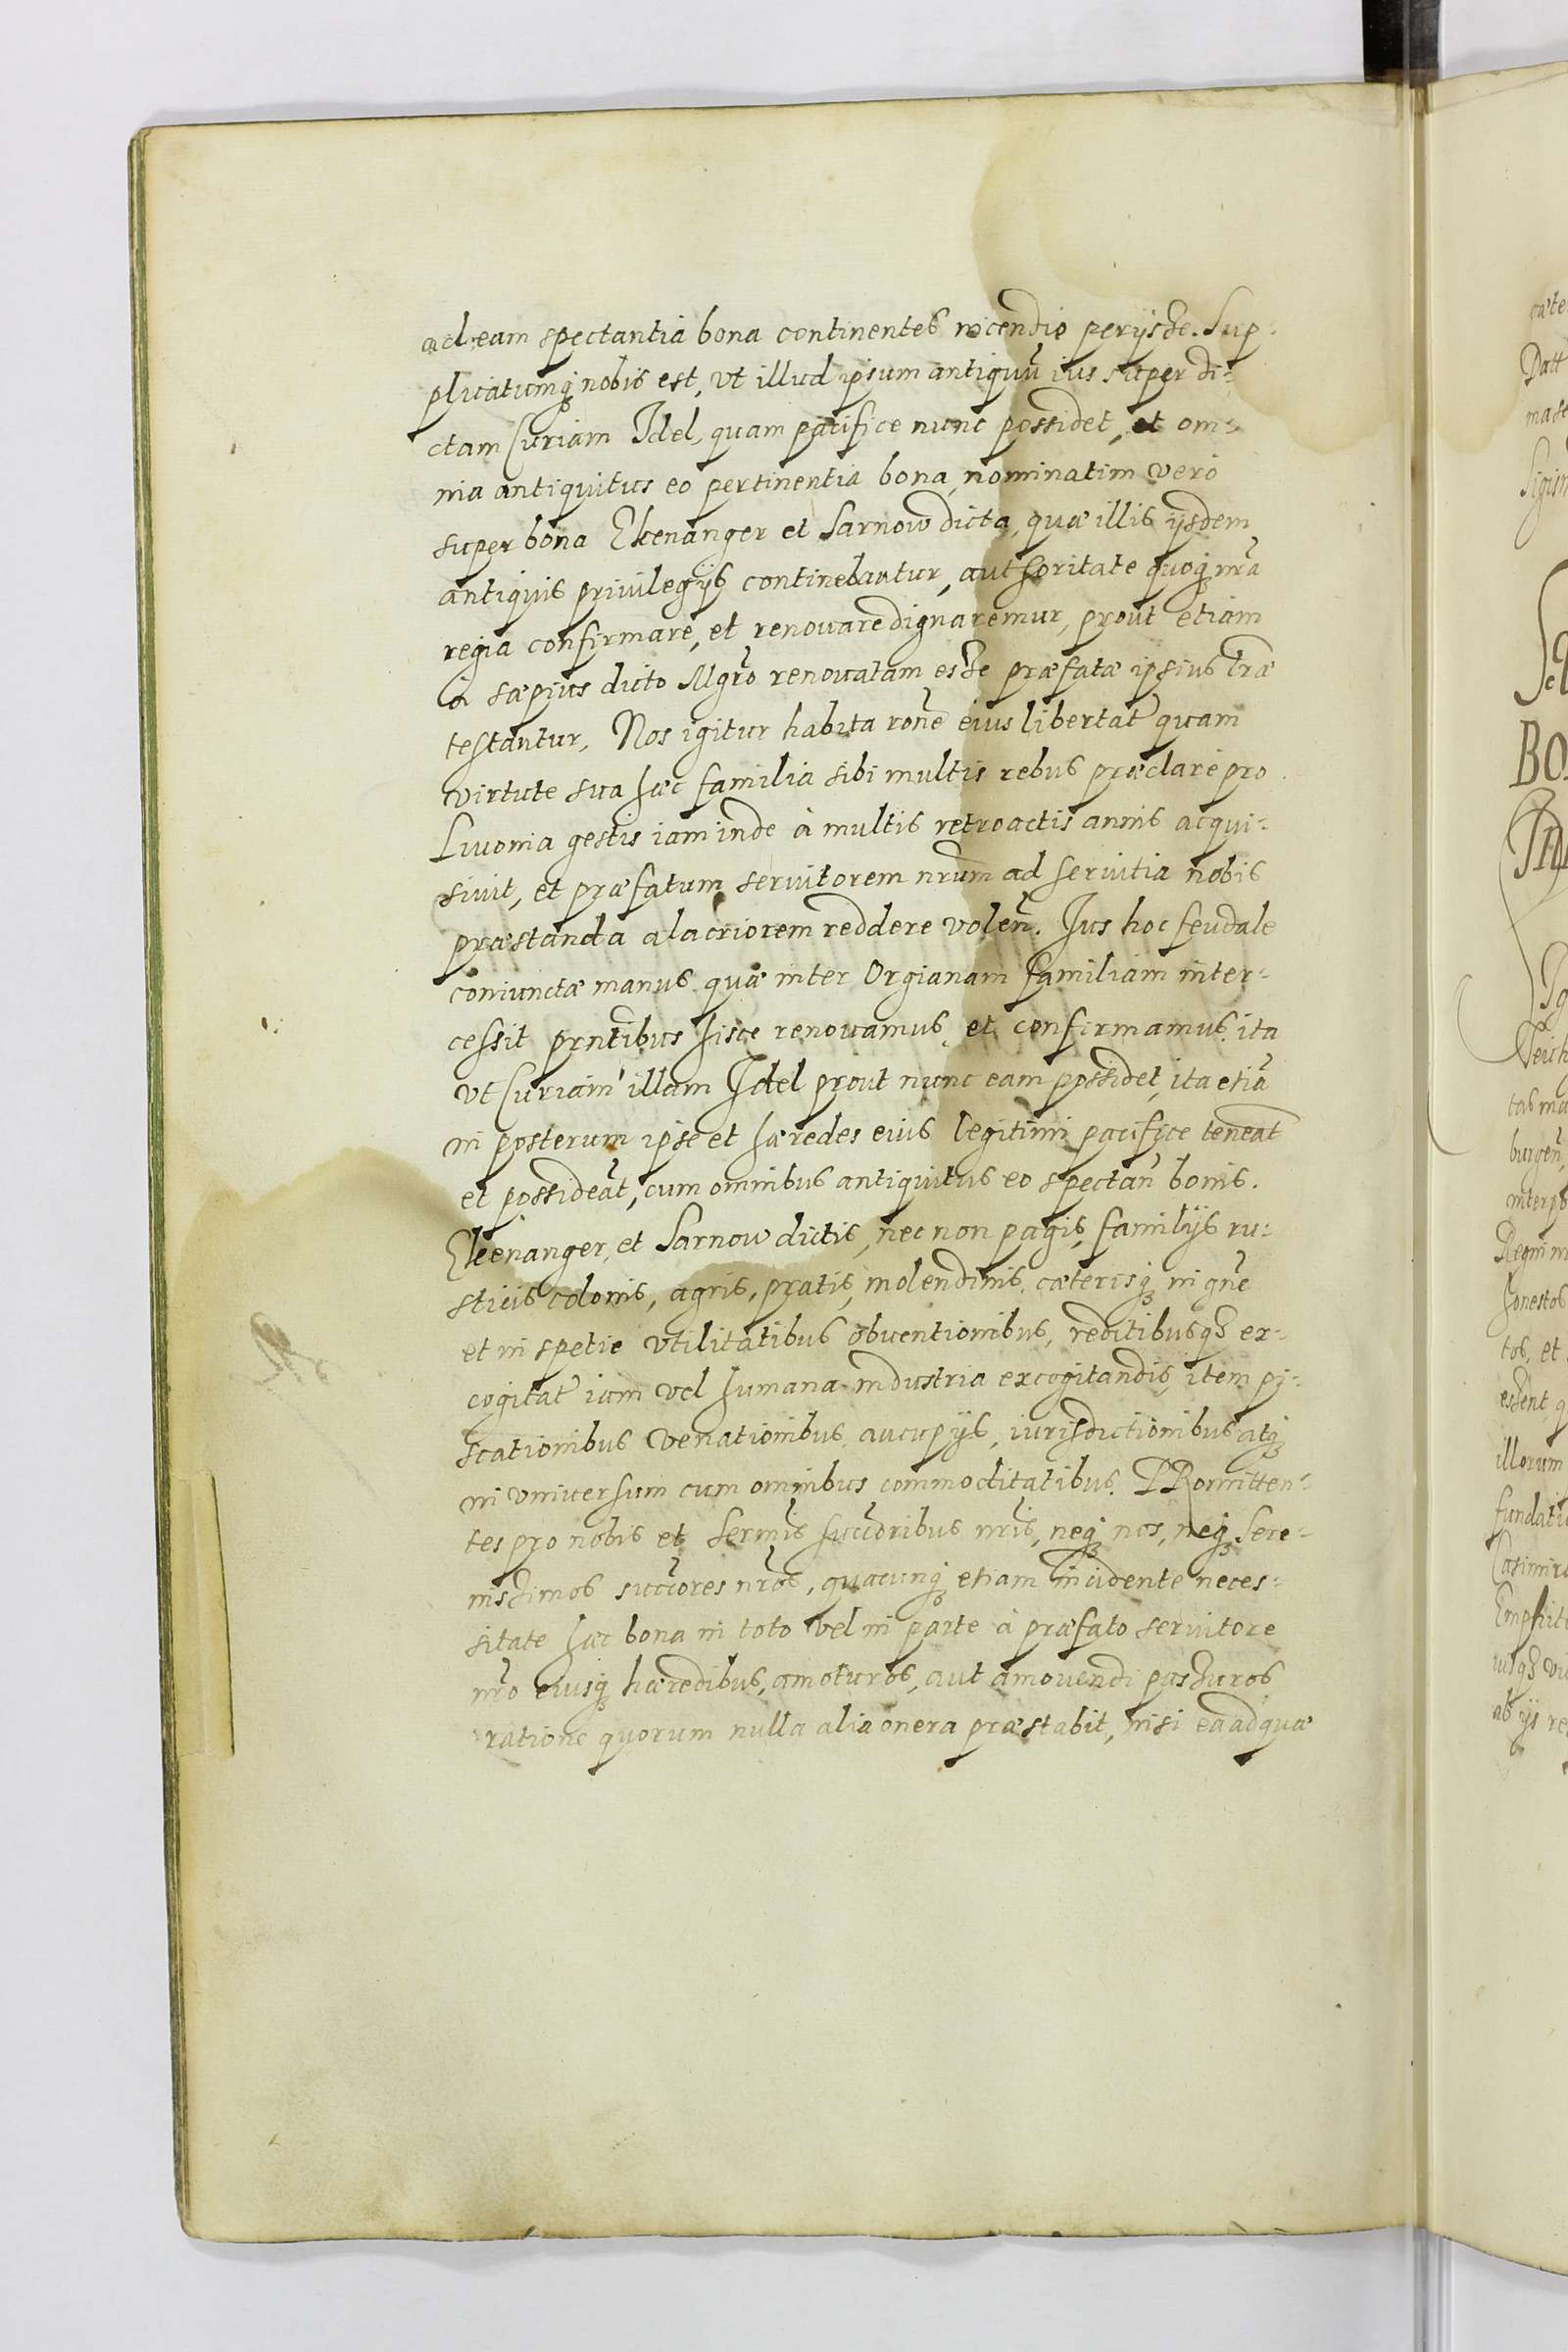 ad eam spectantia bona continentes incendio perijsse. Sup-
plicatumq3 nobis est, vt illud ipsum antiquū ius super di-
ctam Curiam Idel, quam pacifice nunc possidet, et om-
nia antiquitus eo pertinentia bona, nominatim verò
super bona Ekenanger et Sarnow dicta, quæ illis ijsdem
antiquis priuilegijs continebantur, authoritate quoq3 nr̃a
regia confirmare, et renouare dignaremur, prout etiam
à sæpius dicto Mgrõ renouatam esse præfatæ ipsius lr̃æ
testantur, Nos igitur habita rõne eius libertat̃ quam
virtute sua hæc familia sibi multis rebus præclarè pro
Liuonia gestis iam inde à multis retroactis annis acqui-
siuit, et præfatum seruitorem nr̃um ad seruitia nobis
præstanda alacriorem reddere volen̄. Ius hoc feudale
coniunctæ manus quæ inter Orgianam familiam inter-
cessit prñtibus hisce renouamus, et confirmamus, ita
vt Curiam illam Idel prout nunc eam possidet, ita etiā
in posterum ipse et hæredes eius legitimi pacifice teneāt
et possideāt, cum omnibus antiquitus eo spectan̄ bonis.
Ekenanger, et Sarnow dictis, nec non pagis, familijs ru-
sticis colonis, agris, pratis, molendinis, cæterisq3 in gñe
et in spetie vtilitatibus obuentionibus, reditibusq3 ex-
cogitat̃ iam vel humana industria excogitandis, item pi-
scationibus venationibus, aucupijs, iurisdictionibus atq3
in vniuersum cum omnibus commoditatibus. PRomitten-
tes pro nobis et Sermis̃ succõribus nr̃is, neq3 nos, neq3 Sere-
nissimos succõres nr̃os, quacunq3 etiam incidente neces-
sitate hæc bona in toto vel in parte à præfato seruitore
nr̃o eiusq3 hæredibus, amoturos, aut amouendi passuros
ratione quorum nulla alia onera præstabit, nisi ea ad quæ